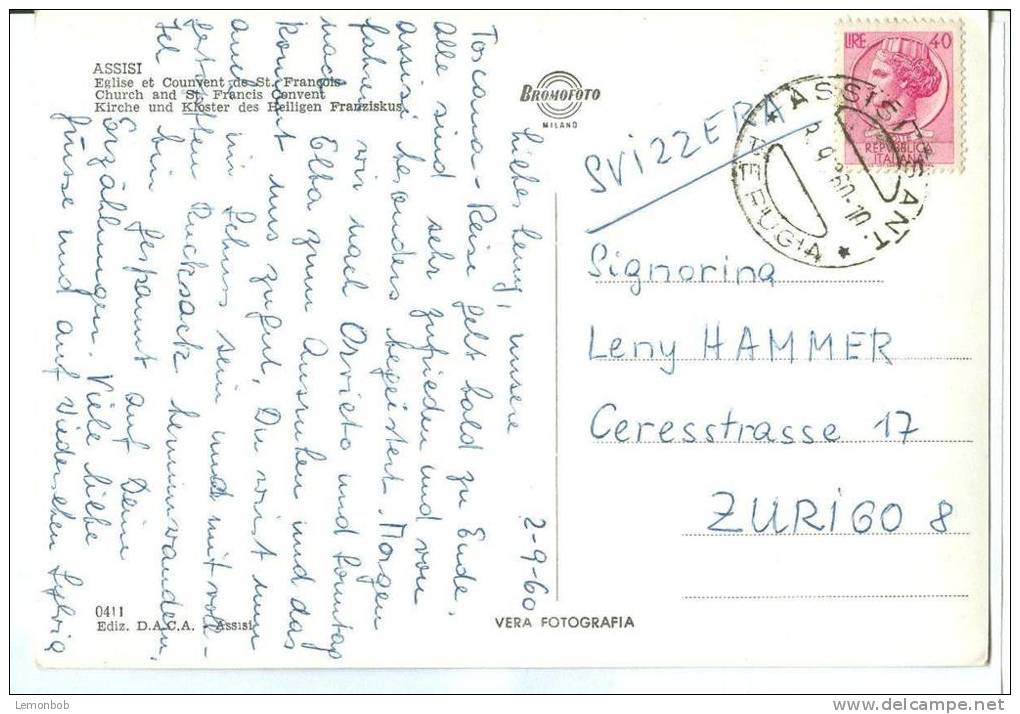 ASSISI
Eglise et Counvent de St. François
Church and St. Francis Convent
Kirche und Kloster des Heiligen Franziskus
BROMOFOTO
MILANO
LIRE 40
REPUBBLICA
ITALIANA
ASSISI
PERUGIA
SVIZZERA
Signorina
Leny HAMMER
Ceresstrasse 17
ZURIGO 8
2-9-60
Liebes Leny, unsere
Toscana-Reise geht bald zu Ende.
Alle sind sehr zufrieden und von
Assisi besonders begeistert. Morgen
fahren wir nach Orvieto und Sonntag
nach Elba zum Ausruhen und das
kommt uns zugut. Du wirst nun
auch im Schuss sein und mit voll-
gestopften Rucksack herumwandern,
Ich bin gespannt auf Deine
Erzählungen. Viele liebe
Grüsse und auf Wiedersehen Sylvia
0411
Ediz. D.A.C.A. - Assisi
VERA FOTOGRAFIA
Lemonbob
delcampe.net